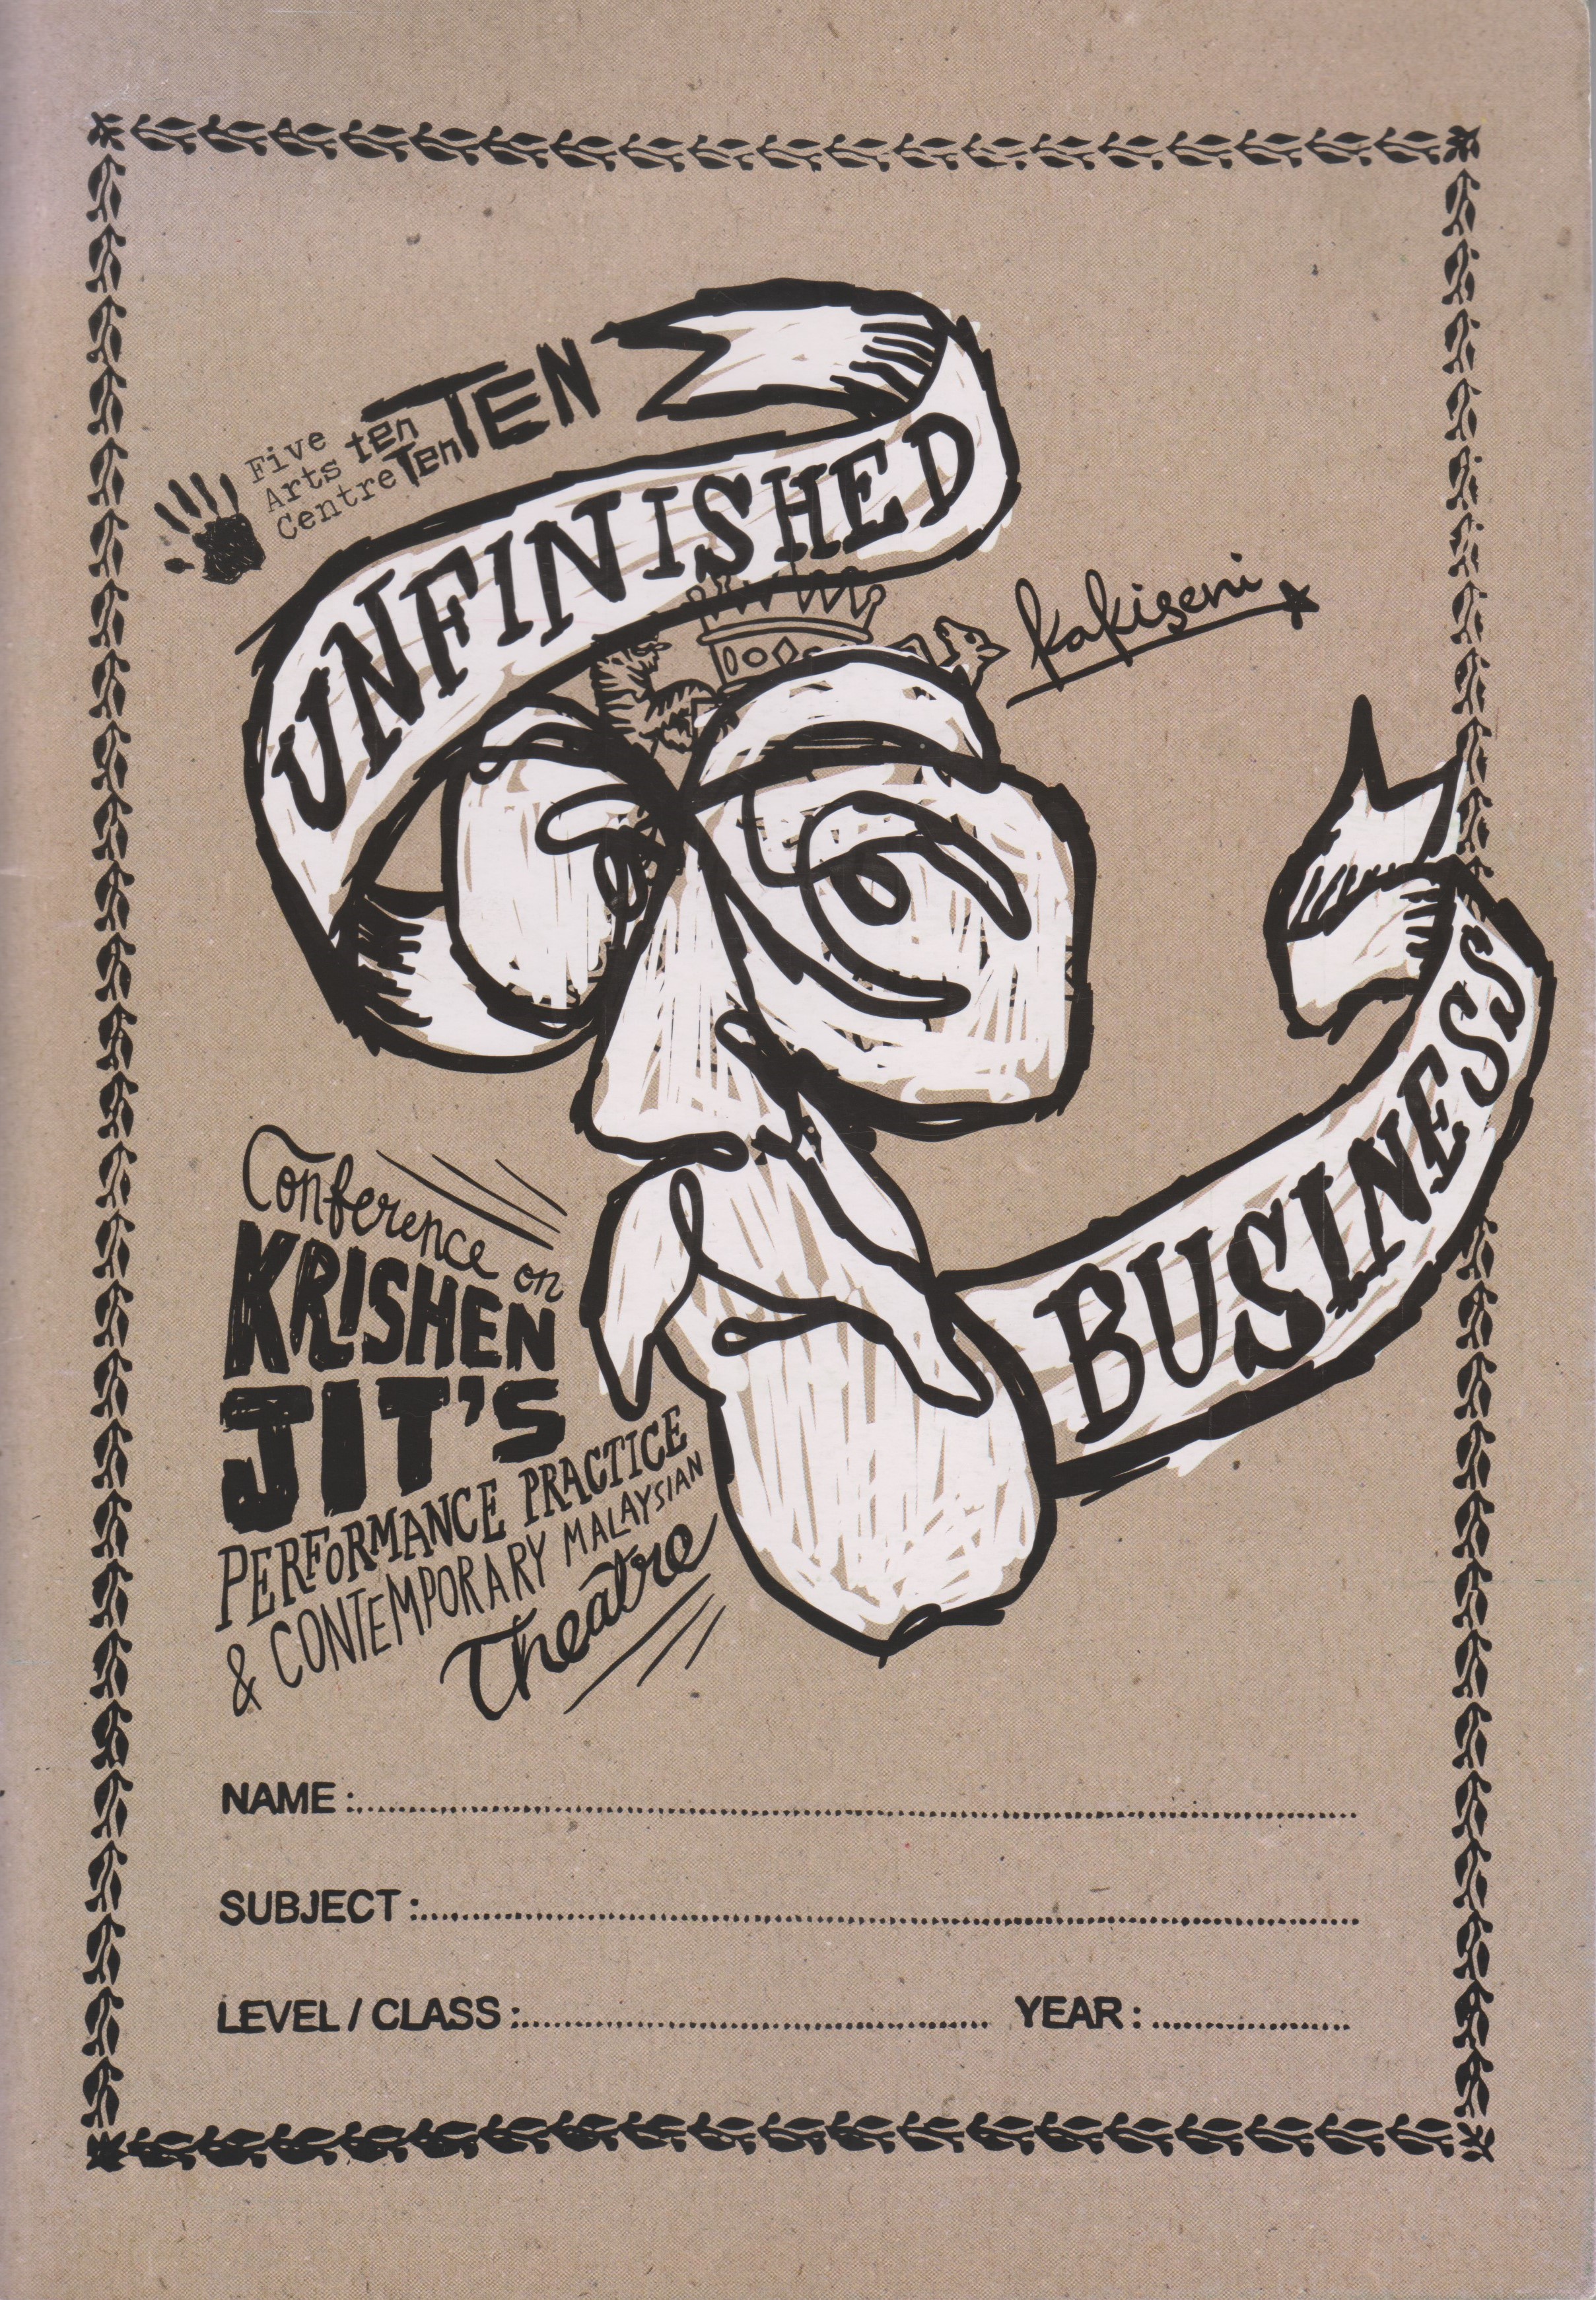 Five
Arts ten TEN
Centre Ten
UNFINISHED
kakiseni
BUSINESS
Conference on
KRISHEN
JIT'S
PERFORMANCE PRACTICE
& CONTEMPORARY MALAYSIAN
Theatre
NAME :
SUBJECT :
LEVEL / CLASS : YEAR :